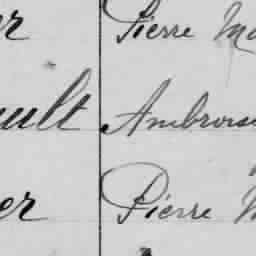 er Pierre Ma
ult Ambrois
er Pierre M